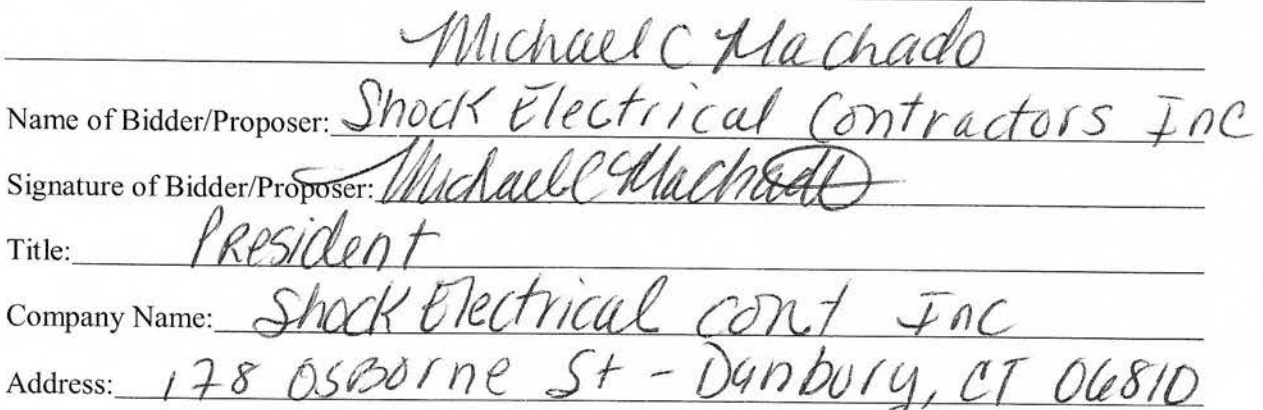 Michael C Machado
Name of Bidder/Proposer: Shock Electrical Contractors Inc
Signature of Bidder/Proposer: Michael C Machado
Title: President
Company Name: Shock Electrical cont Inc
Address: 178 Osborne St - Danbury, CT 06810